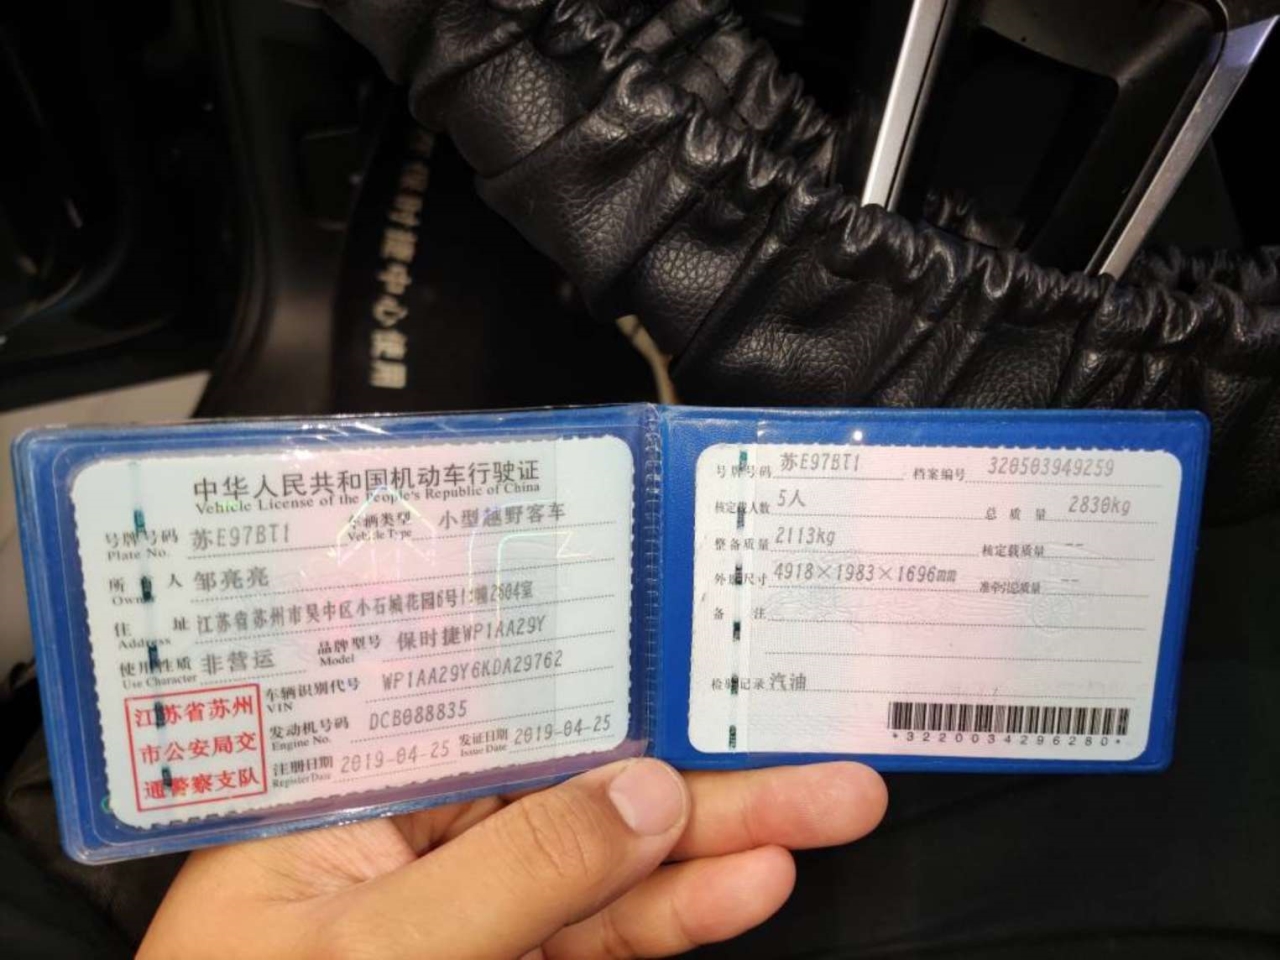 保时捷中心使用
中华人民共和国机动车行驶证
Vehicle License of the People's Republic of China
号牌号码 苏E97BT1 车辆类型 小型越野客车
Plate No. Vehicle Type
所有人 邹亮亮
Owner
住址 江苏省苏州市吴中区小石城花园6号1幢2604室
Address
使用性质 非营运 品牌型号 保时捷WP1AA29Y
Use Character Model
车辆识别代号 WP1AA29Y6KDA29762
VIN
发动机号码 DCB088835
Engine No.
注册日期 2019-04-25 发证日期 2019-04-25
Register Date Issue Date
江苏省苏州
市公安局交
通警察支队
号牌号码 苏E97BT1 档案编号 320503949259
核定载人数 5人 总质量 2830kg
整备质量 2113kg 核定载质量 --
外廓尺寸 4918×1983×1696mm 准牵引总质量 --
备注
检验记录 汽油
*3220034296280*